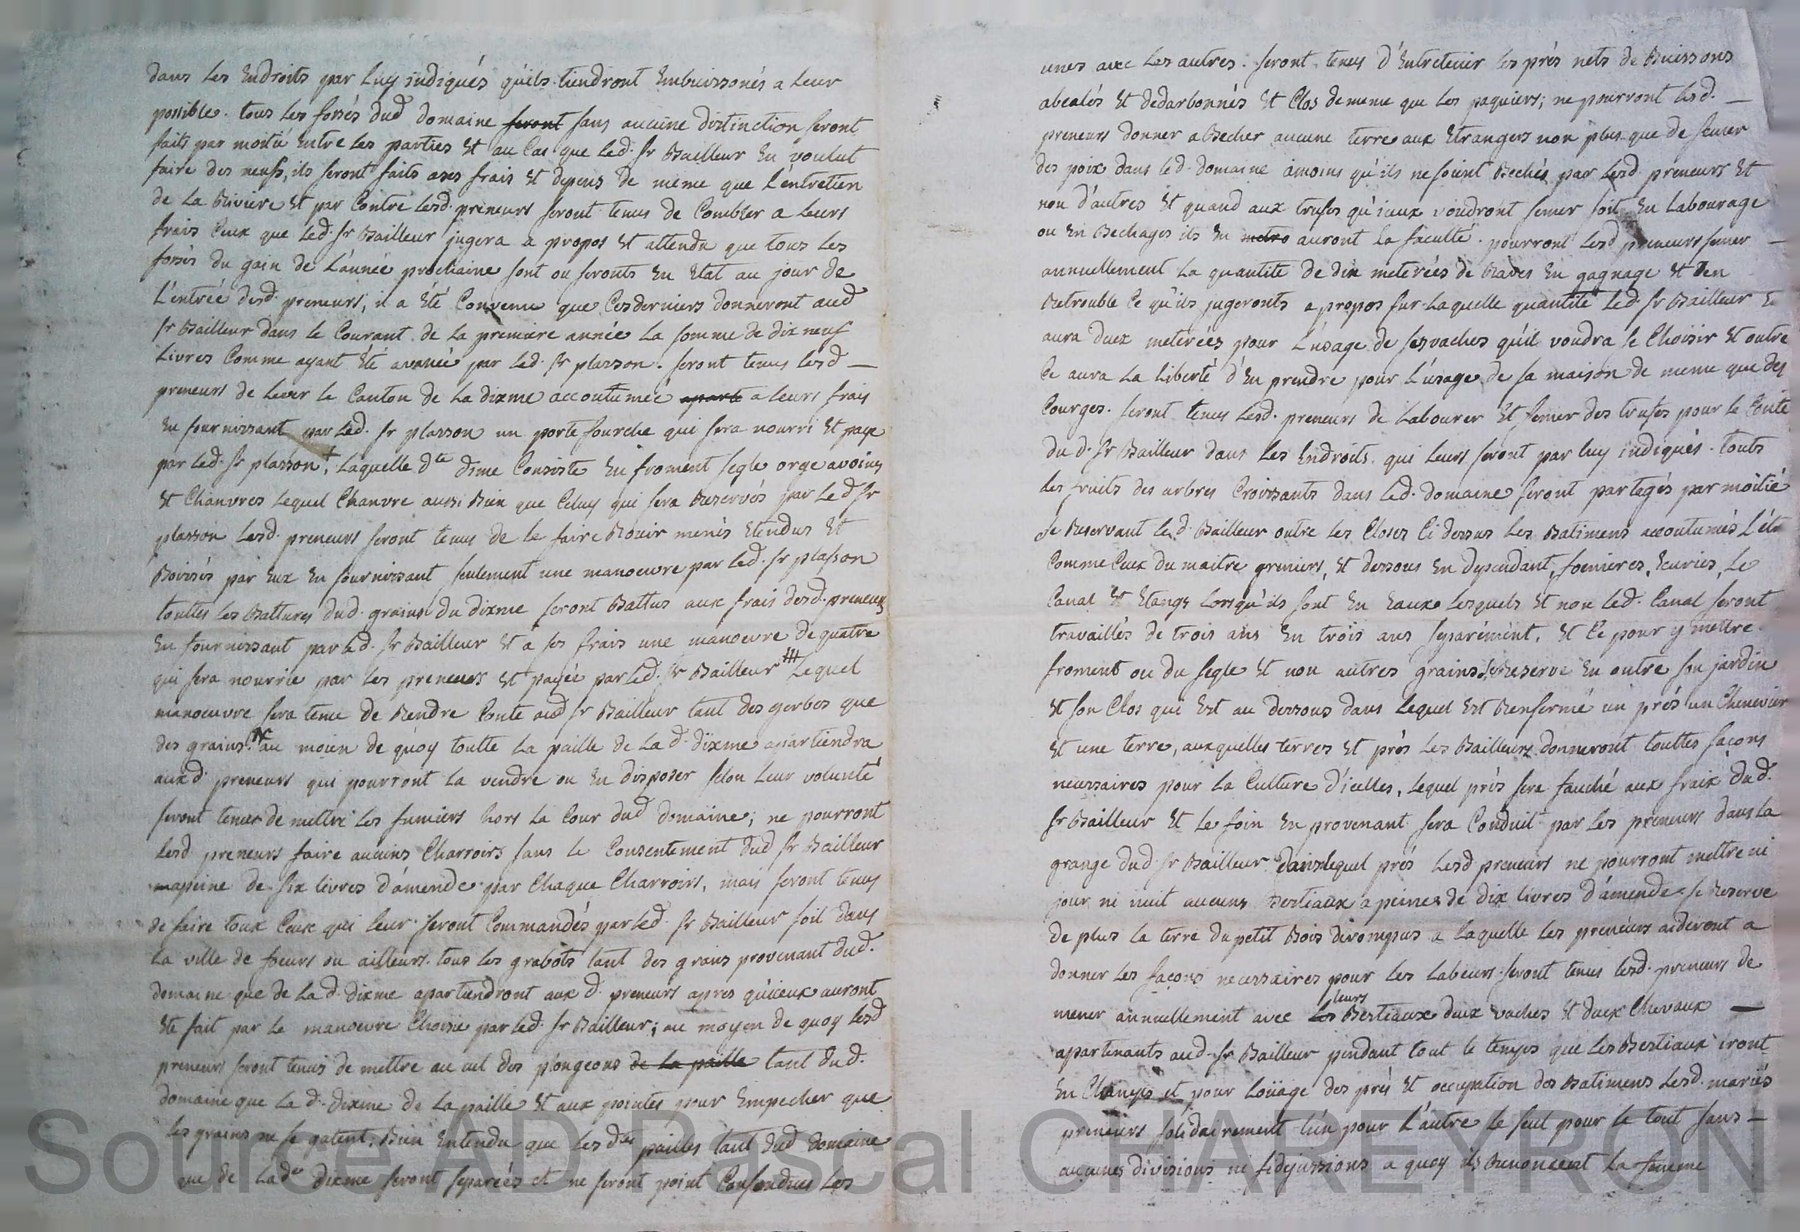 dans les Endroits par luy indiqués qu'ils tiendront Embuissonés a leur
possible. tous les fossés dud domaine seront sans aucune distinction seront
faits par moitié Entre les parties Et au Cas que led. Sr Bailleur En voulut
faire des neufs, ils seront faits a ses frais Et depens de meme que l'entretien
de La Riviere Et par Contre lesd. preneurs seront tenus de Combler a leurs
frais Ceux que led. Sr Bailleur jugera a propos Et attendu que tous les
fossés du gain de L'année prochaine sont ou seronts En Etat au jour de
L'entrée desd. preneurs, il a été Convenu que Ces derniers donneront aud
Sr Bailleur dans le Courant de La premiere année La somme de dix neuf
Livres Comme ayant été avancé par led. Sr plasson. seront tenus lesd —
preneurs de lever le Canton de La dixme accoutumée a leurs frais
En fournissant par led. Sr plasson un porte fourche qui sera nourri Et payé
par led. Sr plasson. Laquelle dte dime Consiste En froment segle orge avoine
Et Chanvres lequel Chanvre aussi Bien que Celuy qui sera Reservés par led Sr
plasson lesd. preneurs seront tenus de le faire Rouir menés Etendus Et
par Eux En fournissant seulement une manoeuvre par led. Sr plasson
touttes les Battures dud. grains du dixme seront Battus aux frais desd. preneurs
En fournissant par led. Sr Bailleur Et a ses frais une manoeuvre de quatre
qui sera nourrie par les preneurs Et payée par led. Sr Bailleur ‡ Lequel
manoeuvre sera tenu de Rendre Conte aud Sr Bailleur tant des gerbes que
des grains. au moien de quoy toutte La paille de La d. dixme apartiendra
aux d. preneurs qui pourront La vendre ou En disposer selon Leur volunté
seront tenus de mettre les fumiers hors La Cour dud domaine; ne pourront
Lesd preneurs faire aucuns Charroirs sans le Consentement dud Sr Bailleur
a peine de six livres d'amende par Chaque Charroirs, mais seront tenus
de faire toux Ceux qui leur seront Commandés par led. Sr Bailleur soit dans
La ville de foeurs ou ailleurs. tous les grabots tant des grains provenant dud.
domaine que de La d. dixme apartiendront aux d. preneurs apres qu'iceux auront
Eté fait par le manoeuvre Choisie par led. Sr Bailleur; au moyen de quoy lesd
preneurs seront tenus de mettre au cul des pongeons de la paille tant dud.
domaine que La d. dixme de La paille Et aux pointes pour Empecher que
les grains ne se gatent. Bien Entendu que Les dtes pailles tant dud domaine
que de Lade dixme seront separées et ne seront point Confondues Les
unes avec Les autres. seront tenus d'Entretenir les prés nets de Buissons
abealés Et dedarbonnés Et Clos de meme que Les paquiers; ne pourront Lesd. —
preneurs donner a Becher aucune terre aux Etrangers non plus que de semer
des poix dans led. domaine amoins qu'ils ne soient Bechés par Lesd. preneurs Et
non d'autres Et quand aux trufes qu'iceux voudront semer soit En Labourage
ou En Bechages ils En auront La faculté. pourront Lesd preneurs semer —
annuellement La quantité de dix meterées de Raves En gagnage Et d'en
Retrouble Ce qu'ils jugeronts a propos sur Laquelle quantité Led. Sr Bailleur
aura deux meterées pour L'usage de ses vaches qu'il voudra se Choisir Et outre
Ce aura La liberté d'En prendre pour L'usage de sa maison de meme que des
Courges. seront tenus Lesd. preneurs de Labourer Et semer des trufes pour le Conte
du d. Sr Bailleur dans Les Endroits qui Leurs seront par luy indiqués. touts
les fruits des arbres Croissants dans Led. domaine seront partagés par moitié
se Reservant Led. Bailleur outre Les Closes Ci dessus Les Batimens accoutumés
Comme Ceux du maitre greniers, Et dessous En descendant, foenieres, Ecuries, Le
Canal Et Etangs Lorsqu'ils sont En Eaux Lesquels Et non Led. Canal seront
travaillés de trois ans En trois ans separément, Et Ce pour y mettre
froment ou du segle Et non autres grains. se Reserve En outre son jardin
Et son Clos qui Est au dessous dans Lequel Est Renfermé un prés un Chenevier
Et une terre, auxquelles terres Et prés Les Bailleurs donneront touttes façons
necessaires pour La Culture d'icelles, Lequel prés sera fauché aux fraix dud.
Sr Bailleur Et Le foin En provenant sera Conduit par Les preneurs dans La
grange dud. Sr Bailleur. dans lequel prés Lesd preneurs ne pourront mettre ni
jour ni nuit aucuns Bestiaux a peines de dix livres d'amende se Reserve
de plus La terre du petit Bois a Laquelle Les preneurs aideront a
donner Les façons necessaires pour Les Labeurs. seront tenus Lesd. preneurs de
mener annuellement avec Les leurs Bestiaux deux vaches Et deux Chevaux —
apartenants aud. Sr Bailleur pendant tout le temps que Les Bestiaux iront
En Champs et pour Loüage des prés Et occupation des Batimens Lesd. mariés
preneurs solidairement l'un pour L'autre Le seul pour le tout sans —
aucunes divisions ne fidejussions a quoy ils Renoncent La femme